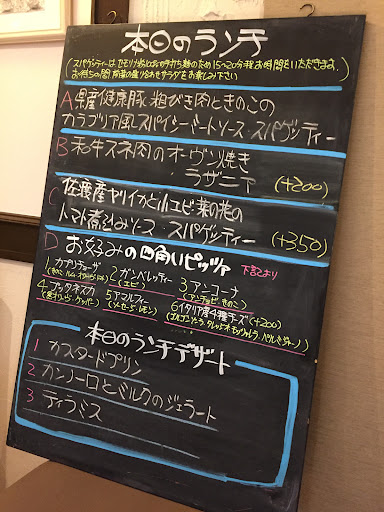 本日のランチ
(スパゲッティーは、セモリナ粉とたまごの手打ち麺のため15〜20分程お時間をいただきます。
お待ちの間、前菜の盛り合わせサラダをお楽しみ下さい
A 県産健康豚粗びき肉ときのこの
カラブリア風スパイシーミートソース・スパゲッティー
B 和牛スネ肉のオーヴン焼き
ラザニア (+200)
C 佐渡産ヤリイカと小エビ 菜の花の
トマト煮込みソース・スパゲッティー (+350)
D お好みの四角いピッツァ 下記より
1 カプリチョーザ 2 ガンベレッティー 3 アンコーナ
(エビ) (アンチョビ・きのこ)
4 プッタネスカ 5 アマルフィー 6 イタリア産4種チーズ (+200)
(黒オリーヴ・ケッパー) (ソーセージ・レモン)
本日のランチデザート
1 カスタードプリン
2 カンノーロとミルクのジェラート
3 ティラミス